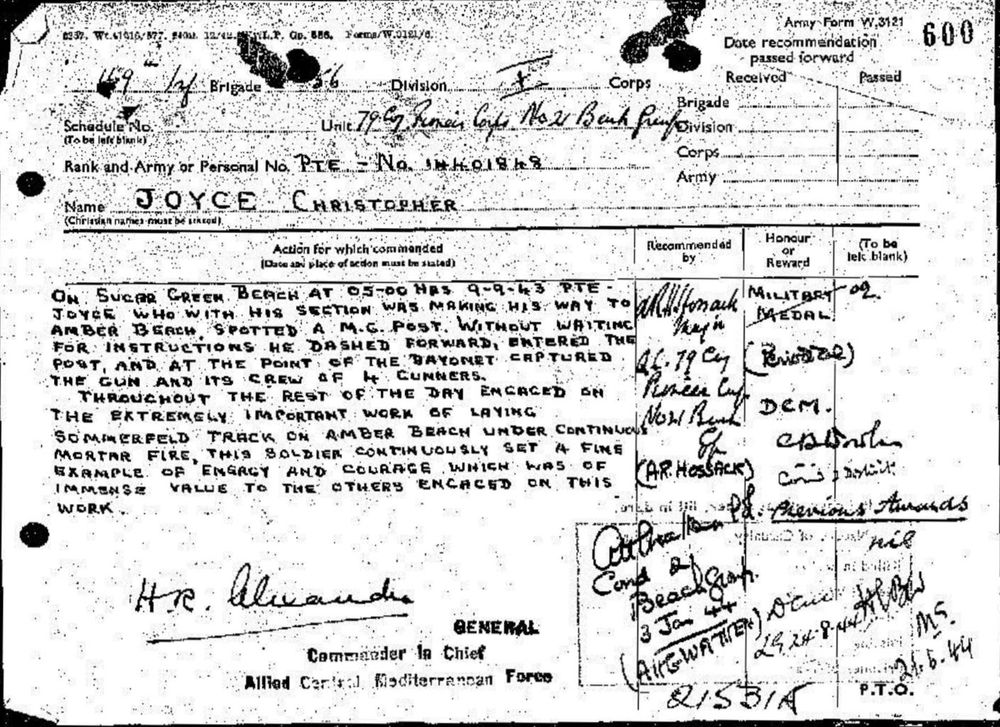 Army Form W.3121
600
Date recommendation
passed forward
Received Passed
Brigade Division Corps
Brigade
Schedule No.
(To be left blank)
Unit 79 Coy. Pioneer Corps No 21 Beach Group
Division
Corps
Rank and Army or Personal No. PTE - No.
Army
Name JOYCE CHRISTOPHER
(Christian names must be stated)
Action for which commended
(Date and place of action must be stated)
Recommended
by
Honour
or
Reward
(To be
left blank)
ON SUGAR GREEN BEACH AT 05-00 HRS 9-9-43 PTE -
JOYCE WHO WITH HIS SECTION WAS MAKING HIS WAY TO
AMBER BEACH SPOTTED A M.G. POST. WITHOUT WAITING
FOR INSTRUCTIONS HE DASHED FORWARD, ENTERED THE
POST, AND AT THE POINT OF THE BAYONET CAPTURED
THE GUN AND ITS CREW OF 4 GUNNERS.
THROUGHOUT THE REST OF THE DAY ENGAGED ON
THE EXTREMELY IMPORTANT WORK OF LAYING
SOMMERFELD TRACK ON AMBER BEACH UNDER CONTINUOUS
MORTAR FIRE, THIS SOLDIER CONTINUOUSLY SET A FINE
EXAMPLE OF ENERGY AND COURAGE WHICH WAS OF
IMMENSE VALUE TO THE OTHERS ENGAGED ON THIS
WORK.
Major
O.C. 79 Coy
Pioneer Corps
No 21 Beach
Gp
(A.R. HOSSACK)
MILITARY
MEDAL
(Periodical)
DCM.
District
Previous Awards
nil
H.R. Alexander
GENERAL
Commander in Chief
Allied Central Mediterranean Force
Comd 21
Beach Group.
3 Jan 44
24-8-44
MS.
21.6.44
21531A
P.T.O.